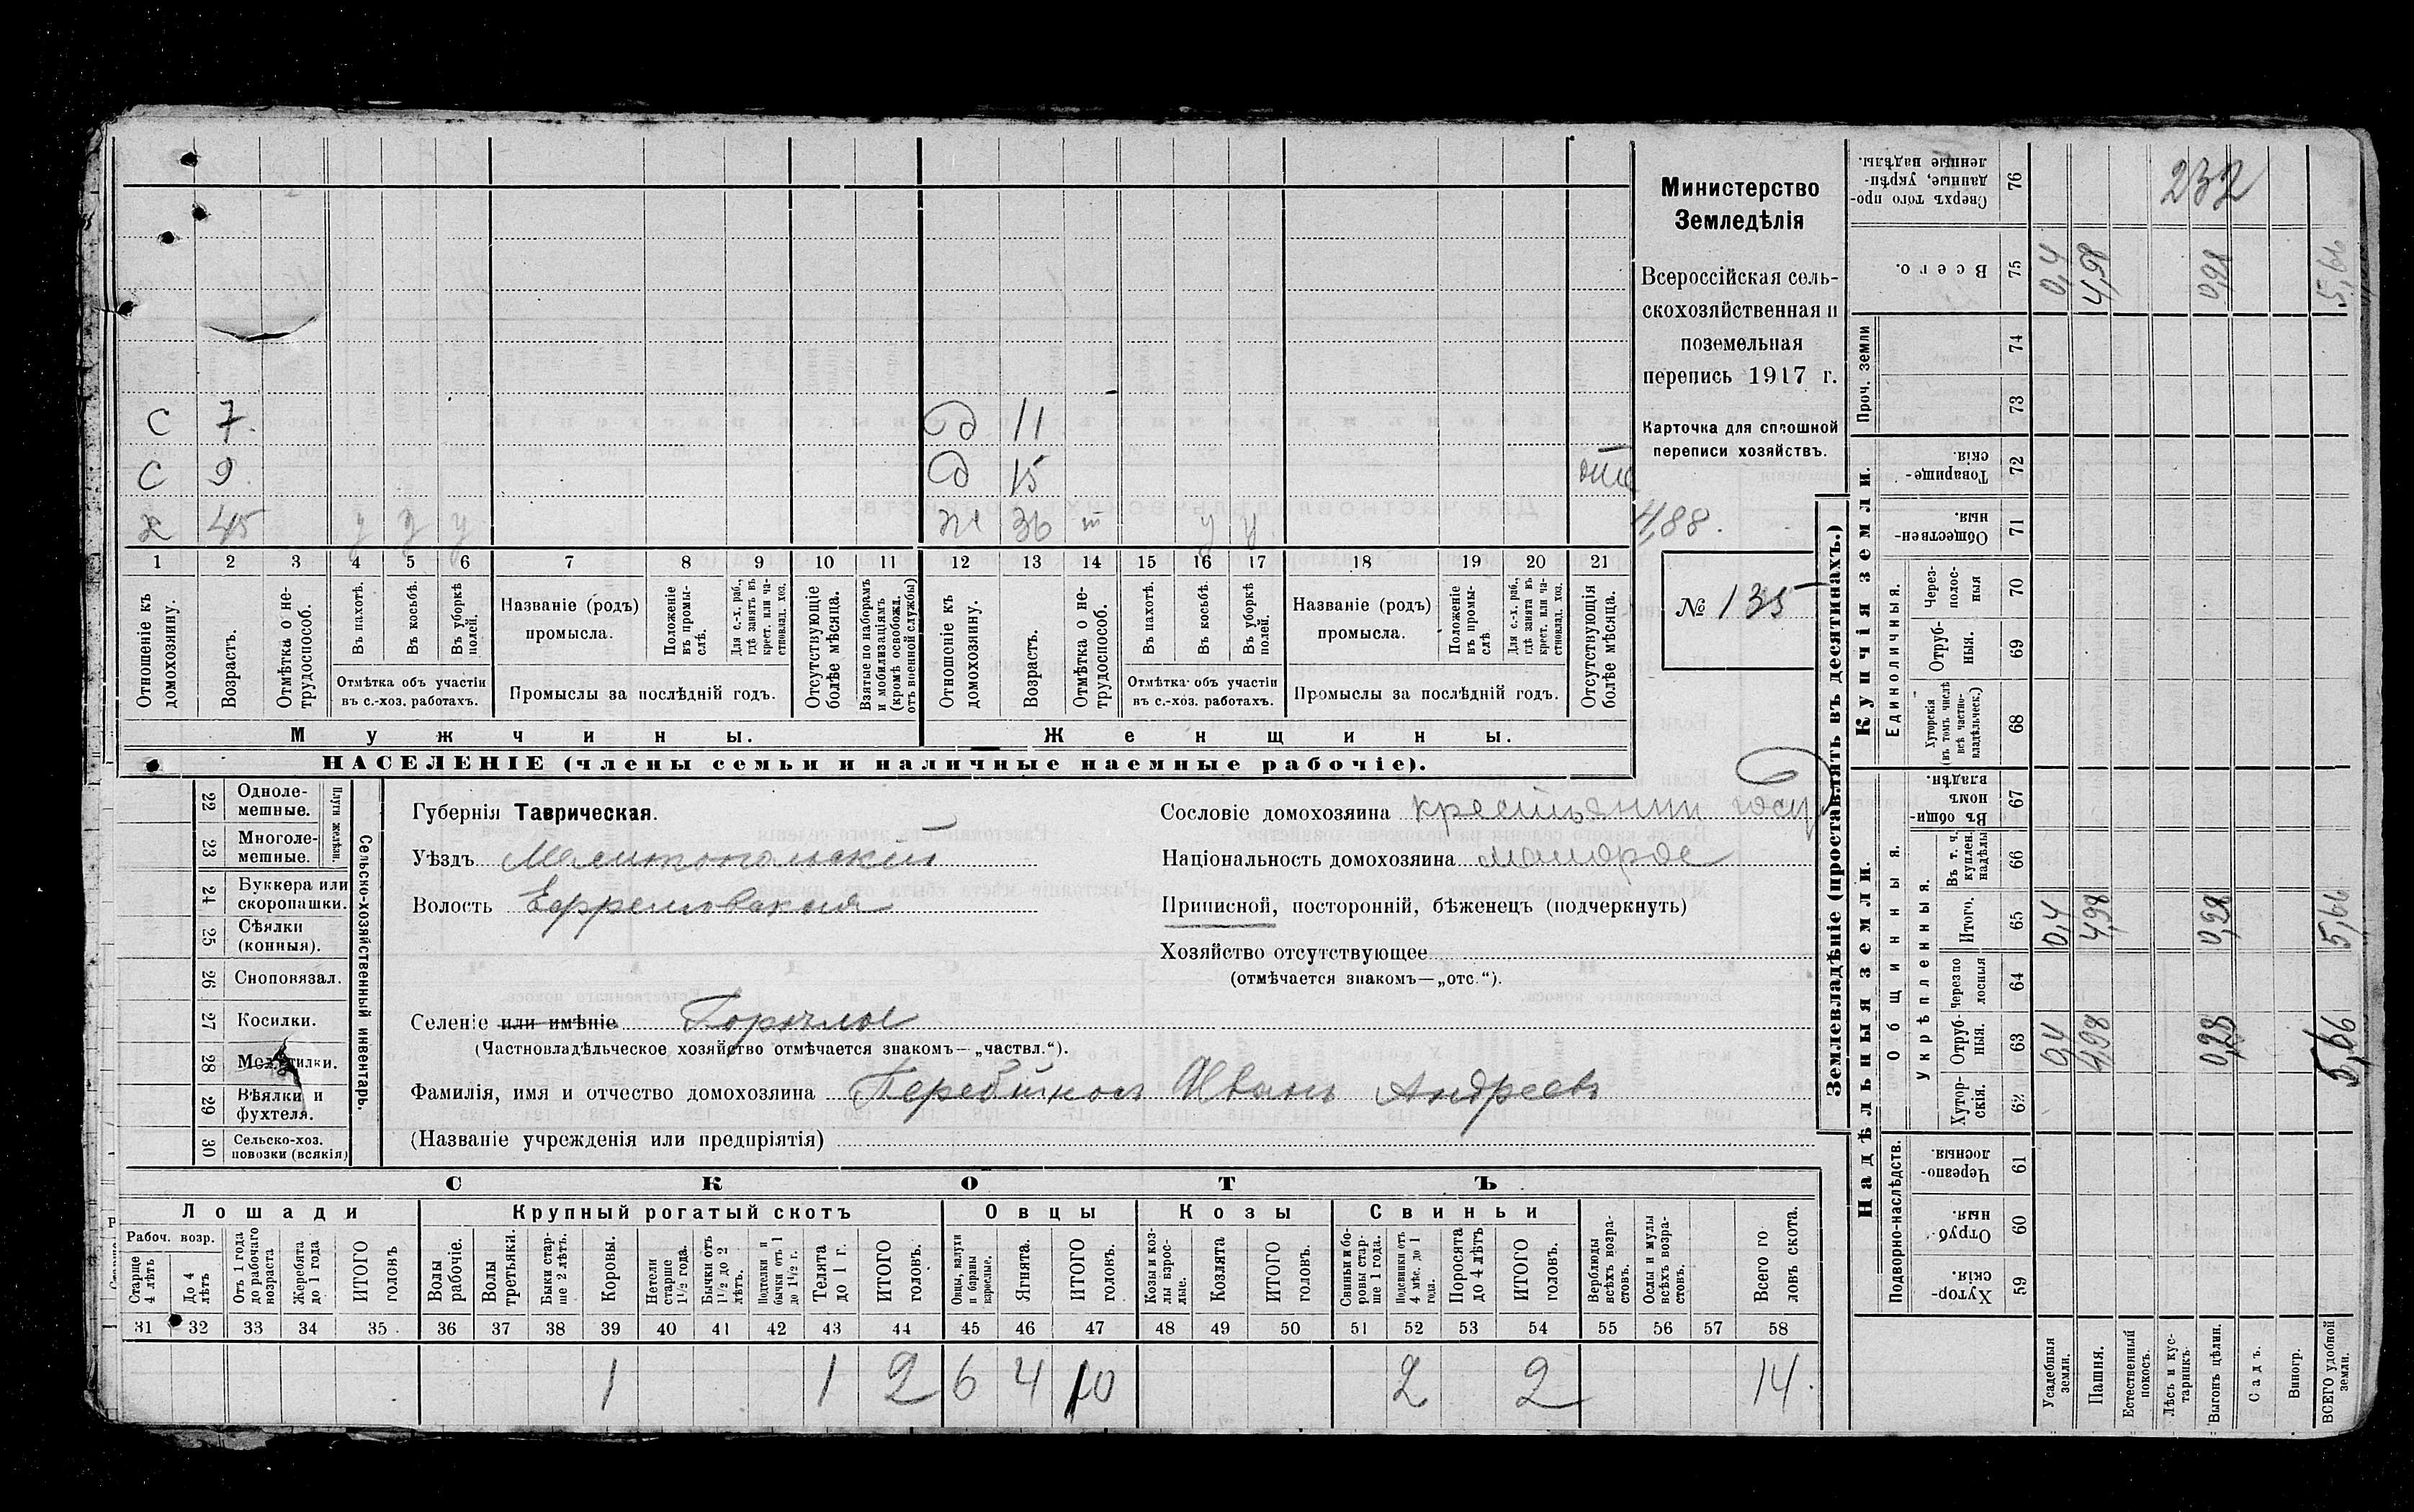 Министерство
Земледѣлія
Всероссійская сель-
скохозяйственная и
поземельная
перепись 1917 г.
Карточка для сплошной
переписи хозяйствъ.
4,88.
№ 135
С 7. д 11
С 9. д 15
х 45 у у у ж 36 у у
1 2 3 4 5 6 7 8 9 10 11 12 13 14 15 16 17 18 19 20 21
Отношеніе къ домохозяину.
Возрастъ.
Отмѣтка о не-трудоспособ.
Въ пахотѣ.
Въ косьбѣ.
Въ уборкѣ полей.
Отмѣтка объ участіи въ с.-хоз. работахъ.
Названіе (родъ) промысла.
Положеніе въ промы-слѣ.
Для с.-х. раб., гдѣ занятъ въ крест. или ча-стновлад. хоз.
Промыслы за послѣдній годъ.
Отсутствующіе болѣе мѣсяца.
Взятые по наборамъ и мобилизаціямъ (кромѣ освобожд. отъ военной службы)
Отношеніе къ домохозяину.
Возрастъ.
Отмѣтка о не-трудоспособ.
Въ пахотѣ.
Въ косьбѣ.
Въ уборкѣ полей.
Отмѣтка объ участіи въ с.-хоз. работахъ.
Названіе (родъ) промысла.
Положеніе въ промы-слѣ
Для с.-х. раб., гдѣ занята въ крест. или ча-стновлад. хоз.
Промыслы за послѣдній годъ.
Отсутствующія болѣе мѣсяца.
Мужчины.
Женщины.
НАСЕЛЕНІЕ (члены семьи и наличные наемные рабочіе).
22 Одноле-мешные.
23 Многоле-мешные.
Плуги желѣзн.
24 Буккера или скоропашки.
25 Сѣялки (конныя).
26 Сноповязал.
27 Косилки.
28 Молотилки.
29 Вѣялки и фухтеля.
30 Сельско-хоз. повозки (всякія)
Сельско-хозяйственный инвентарь.
Губернія Таврическая.
Уѣздъ Мелитопольскій
Волость Ефремовская
Селеніе или имѣніе Горячлое
(Частновладѣльческое хозяйство отмѣчается знакомъ—„частвл.“).
Фамилія, имя и отчество домохозяина Перебійносъ Иванъ Андреевъ
(Названіе учрежденія или предпріятія)
Сословіе домохозяина крестьянин госу
Національность домохозяина малорос
Приписной, посторонній, бѣженецъ (подчеркнуть)
Хозяйство отсутствующее
(отмѣчается знакомъ—„отс.“).
СКОТЪ
Лошади Крупный рогатый скотъ Овцы Козы Свиньи
Рабоч. возр.
Старше 4 лѣтъ
До 4 лѣтъ
Отъ 1 года до рабочаго возраста
Жеребята до 1 года
ИТОГО головъ
Волы рабочіе.
Волы третьяки.
Быки стар-ше 2 лѣтъ.
Коровы.
Нетели старше 1½ года.
Бычки отъ 1½ до 2 лѣтъ.
Подтелки и бычки отъ 1 до 1½ г.
Телята до 1 г.
ИТОГО головъ.
Овцы, валухи и бараны взрослые.
Ягнята.
ИТОГО головъ.
Козы и коз-лы взрос-лые.
Козлята
ИТОГО головъ.
Свиньи и бо-ровы стар-ше 1 года.
Подсвинки отъ 4 мѣс. до 1 года.
Поросята до 4 лѣтъ
ИТОГО головъ.
Верблюды всѣхъ возра-стовъ.
Ослы и мулы всѣхъ возра-стовъ.
Всего го-ловъ скота.
31 32 33 34 35 36 37 38 39 40 41 42 43 44 45 46 47 48 49 50 51 52 53 54 55 56 57 58
1 1 2 6 4 10 2 2 14.
Землевладѣніе (проставлять въ десятинахъ.)
Надѣльныя земли.
Купчія земли.
Проч. земли
Подворно-наслѣдств.
Общинныя.
Укрѣпленныя.
Единоличныя.
59 Хутор-скія.
60 Отруб-ныя.
61 Черезпо-лосныя.
62 Хутор-скія.
63 Отруб-ныя. 0,4 4,98 0,28 5,66
64 Черезпо-лосныя
65 Итого. 0,4 4,98 0,28 5,66
66 Въ т. ч. куплен. надѣлы
67 Въ общи-номъ владѣн.
68 Хуторскія (въ томъ числѣ всѣ частно-владѣльческ.)
69 Отруб-ныя.
70 Через-полос-ныя
71 Обществен-ныя.
72 Товарище-скія.
73
74
75 Всего. 0,4 4,98 0,28 5,66
76 Сверхъ того про-данные, укрѣп-ленные надѣлы. 232
Усадебныя земли.
Пашня.
Естественный покосъ.
Лѣсъ и кус-тарникъ.
Выгонъ цѣлин.
Садъ.
Виногр.
ВСЕГО удобной земли.